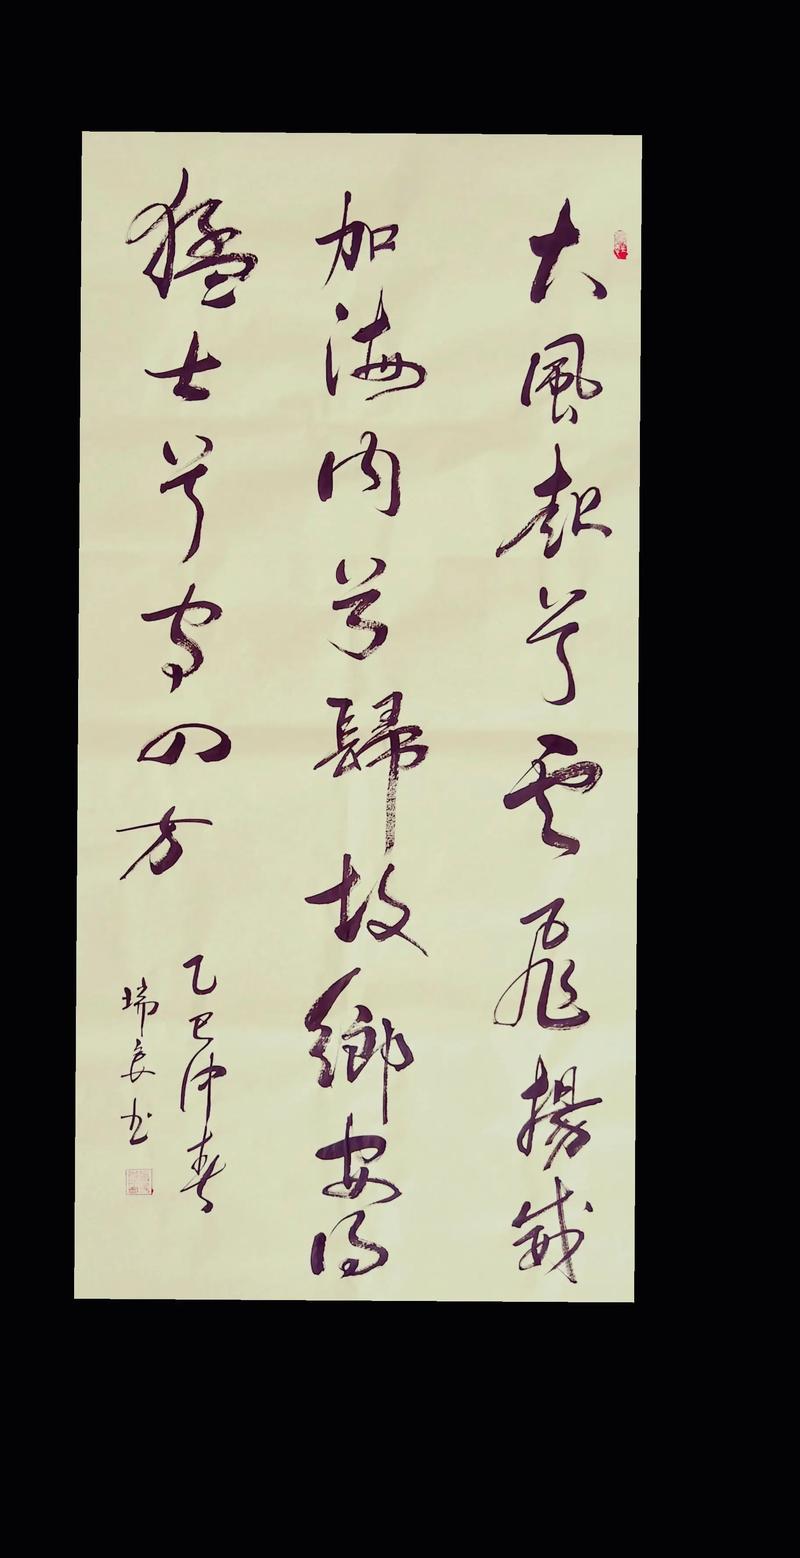 大風起兮雲飛揚威
加海内兮歸故鄉安得
猛士兮守四方
乙巳仲春
瑞良书